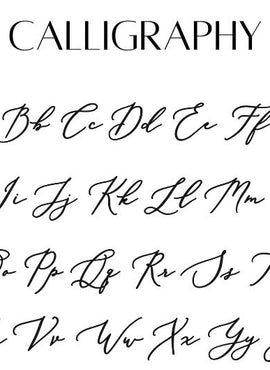 CALLIGRAPHY
Bb Cc Dd Ee Ff
Ii Jj Kk Ll Mm
Oo Pp Qq Rr Ss
Vv Ww Xx Yy